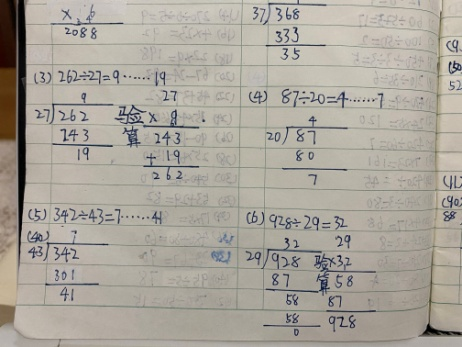 2088
37)368
333
35
(3) 262÷27=9……19
9
27)262
243
19
验算
27
× 9
243
+ 19
262
(4) 87÷20=4……7
4
20)87
80
7
(5) 342÷43=7……41
(40) 7
43)342
301
41
(6) 928÷29=32
32
29)928
87
58
58
0
验算
29
×32
58
87
928